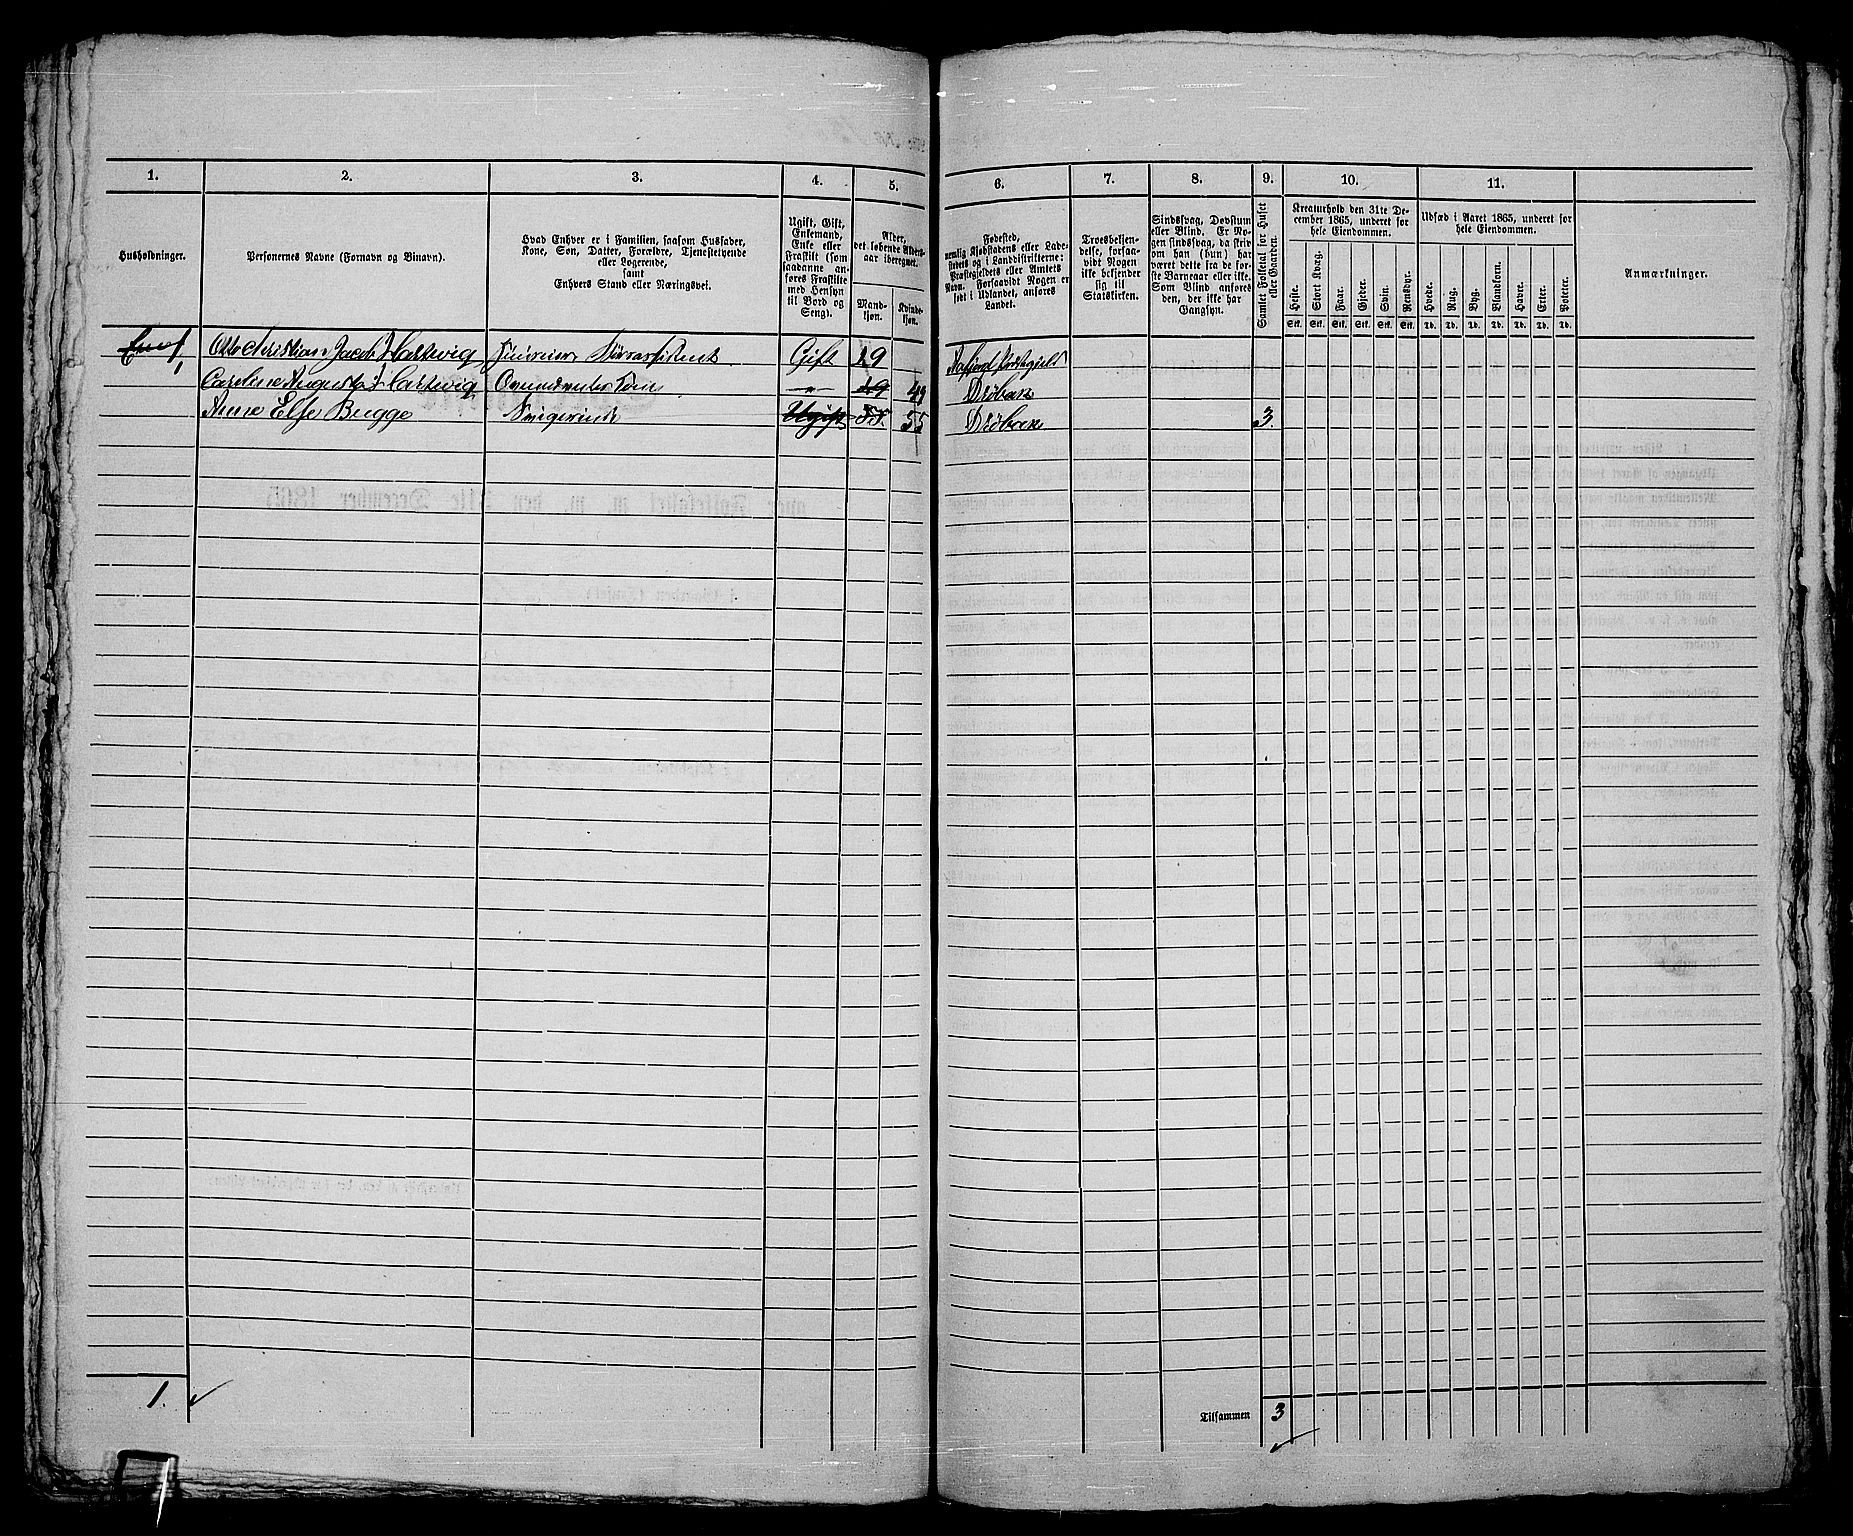 1.
2.
3.
4.
5.
6.
7.
8.
9.
10.
11.
Husholdninger.
Personernes Navne (Fornavn og Binavn).
Hvad Enhver er i Familien, saasom Husfader,
Kone, Søn, Datter, Forældre, Tjenestetyende
eller Logerende,
samt
Enhvers Stand eller Næringsvei.
Ugift, Gift,
Enkemand,
Enke eller
Fraskilt (som
saadanne an-
føres Fraskilte
med Hensyn
til Bord og
Seng).
Alder,
det løbende Alders-
aar iberegnet.
Mand-
kjøn.
Kvinde-
kjøn.
Fødested,
nemlig Kjøbstadens eller Lade-
stedets og i Landdistrikterne:
Præstegjeldets eller Amtets
Navn. Forsaavidt Nogen er
født i Udlandet, anføres
Landet.
Troesbekjen-
delse, forsaa-
vidt Nogen
ikke bekjender
sig til
Statskirken.
Sindssvag, Døvstum
eller Blind. Er No-
gen sindssvag, da skriv
om han (hun) har
været dette fra de før-
ste Barneaar eller ikke.
Som Blind anføres
den, der ikke har
Gangsyn.
Samlet Folketal for Huset
eller Gaarden.
Kreaturhold den 31te De-
cember 1865, underet for
hele Eiendommen.
Heste.
Stort Kvæg.
Faar.
Gjeder.
Svin.
Rensdyr.
Stk. Stk. Stk. Stk. Stk. Stk.
Udsæd i Aaret 1865, underet for
hele Eiendommen.
Hvede.
Rug.
Byg.
Blandkorn.
Havre.
Erter.
Poteter.
Td. Td. Td. Td. Td. Td. Td.
Anmærkninger.
1, Otto Christian Jacob Hartwig Gift 29
Caroline Augusta Hartwig Ovennævntes Kone " 29 49 Drøbak
Anne Else Bugge Svigerinde Ugift 55. 55 Drøbak 3
1.
Tilsammen 3